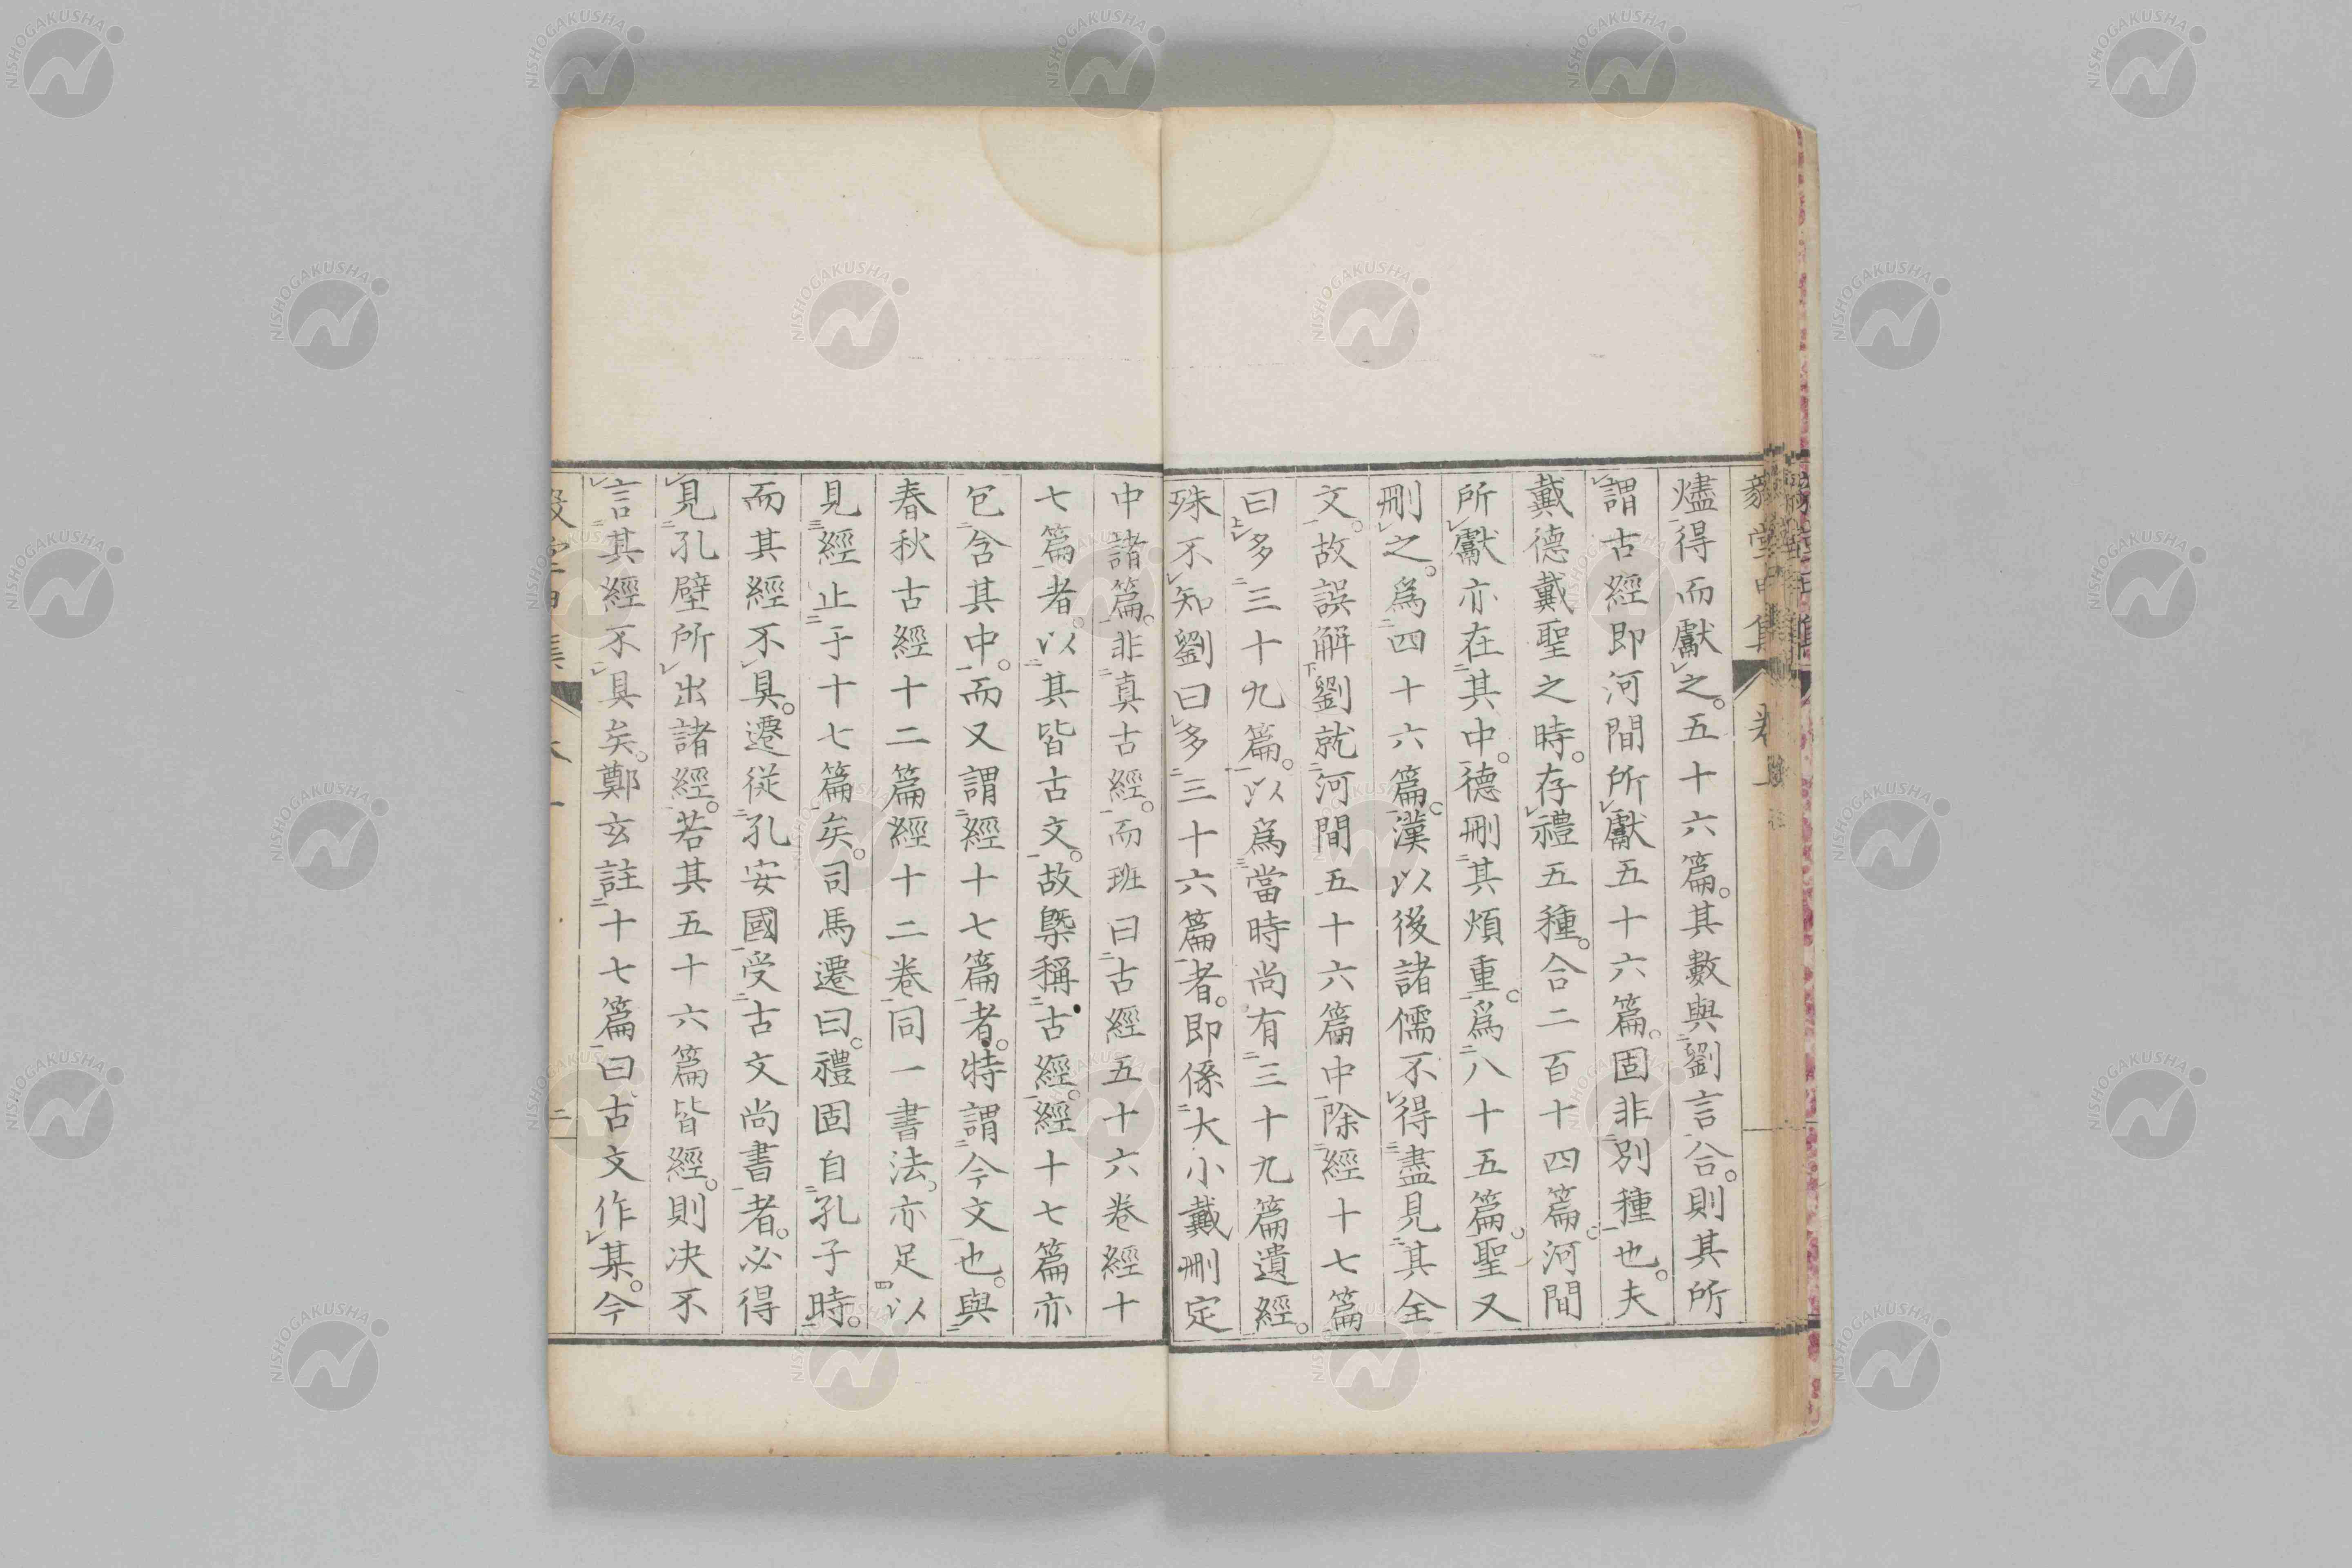 燼得而獻之。五十六篇。其數與劉言合。則其所
謂古經即河間所獻五十六篇。固非別種也。夫
戴德戴聖之時。存禮五種。合二百十四篇。河間
所獻亦在其中。德刪其煩重。爲八十五篇。聖又
刪之。爲四十六篇。漢以後諸儒不得盡見其全
文。故誤解劉就河間五十六篇中除經十七篇
曰多三十九篇。以爲當時尚有三十九篇遺經。
殊不知劉曰多三十六篇者。即係大小戴刪定
中諸篇。非真古經。而班曰古經五十六卷經十
七篇者。以其皆古文。故槩稱古經。經十七篇亦
包含其中。而又謂經十七篇者。特謂今文也。與
春秋古經十二篇經十二卷同一書法。亦足以
見經止于十七篇矣。司馬遷曰。禮固自孔子時。
而其經不具。遷從孔安國受古文尚書者。必得
見孔壁所出諸經。若其五十六篇皆經。則决不
言其經不具矣。鄭玄註十七篇曰古文作某。今
二
NISHOGAKUSHA